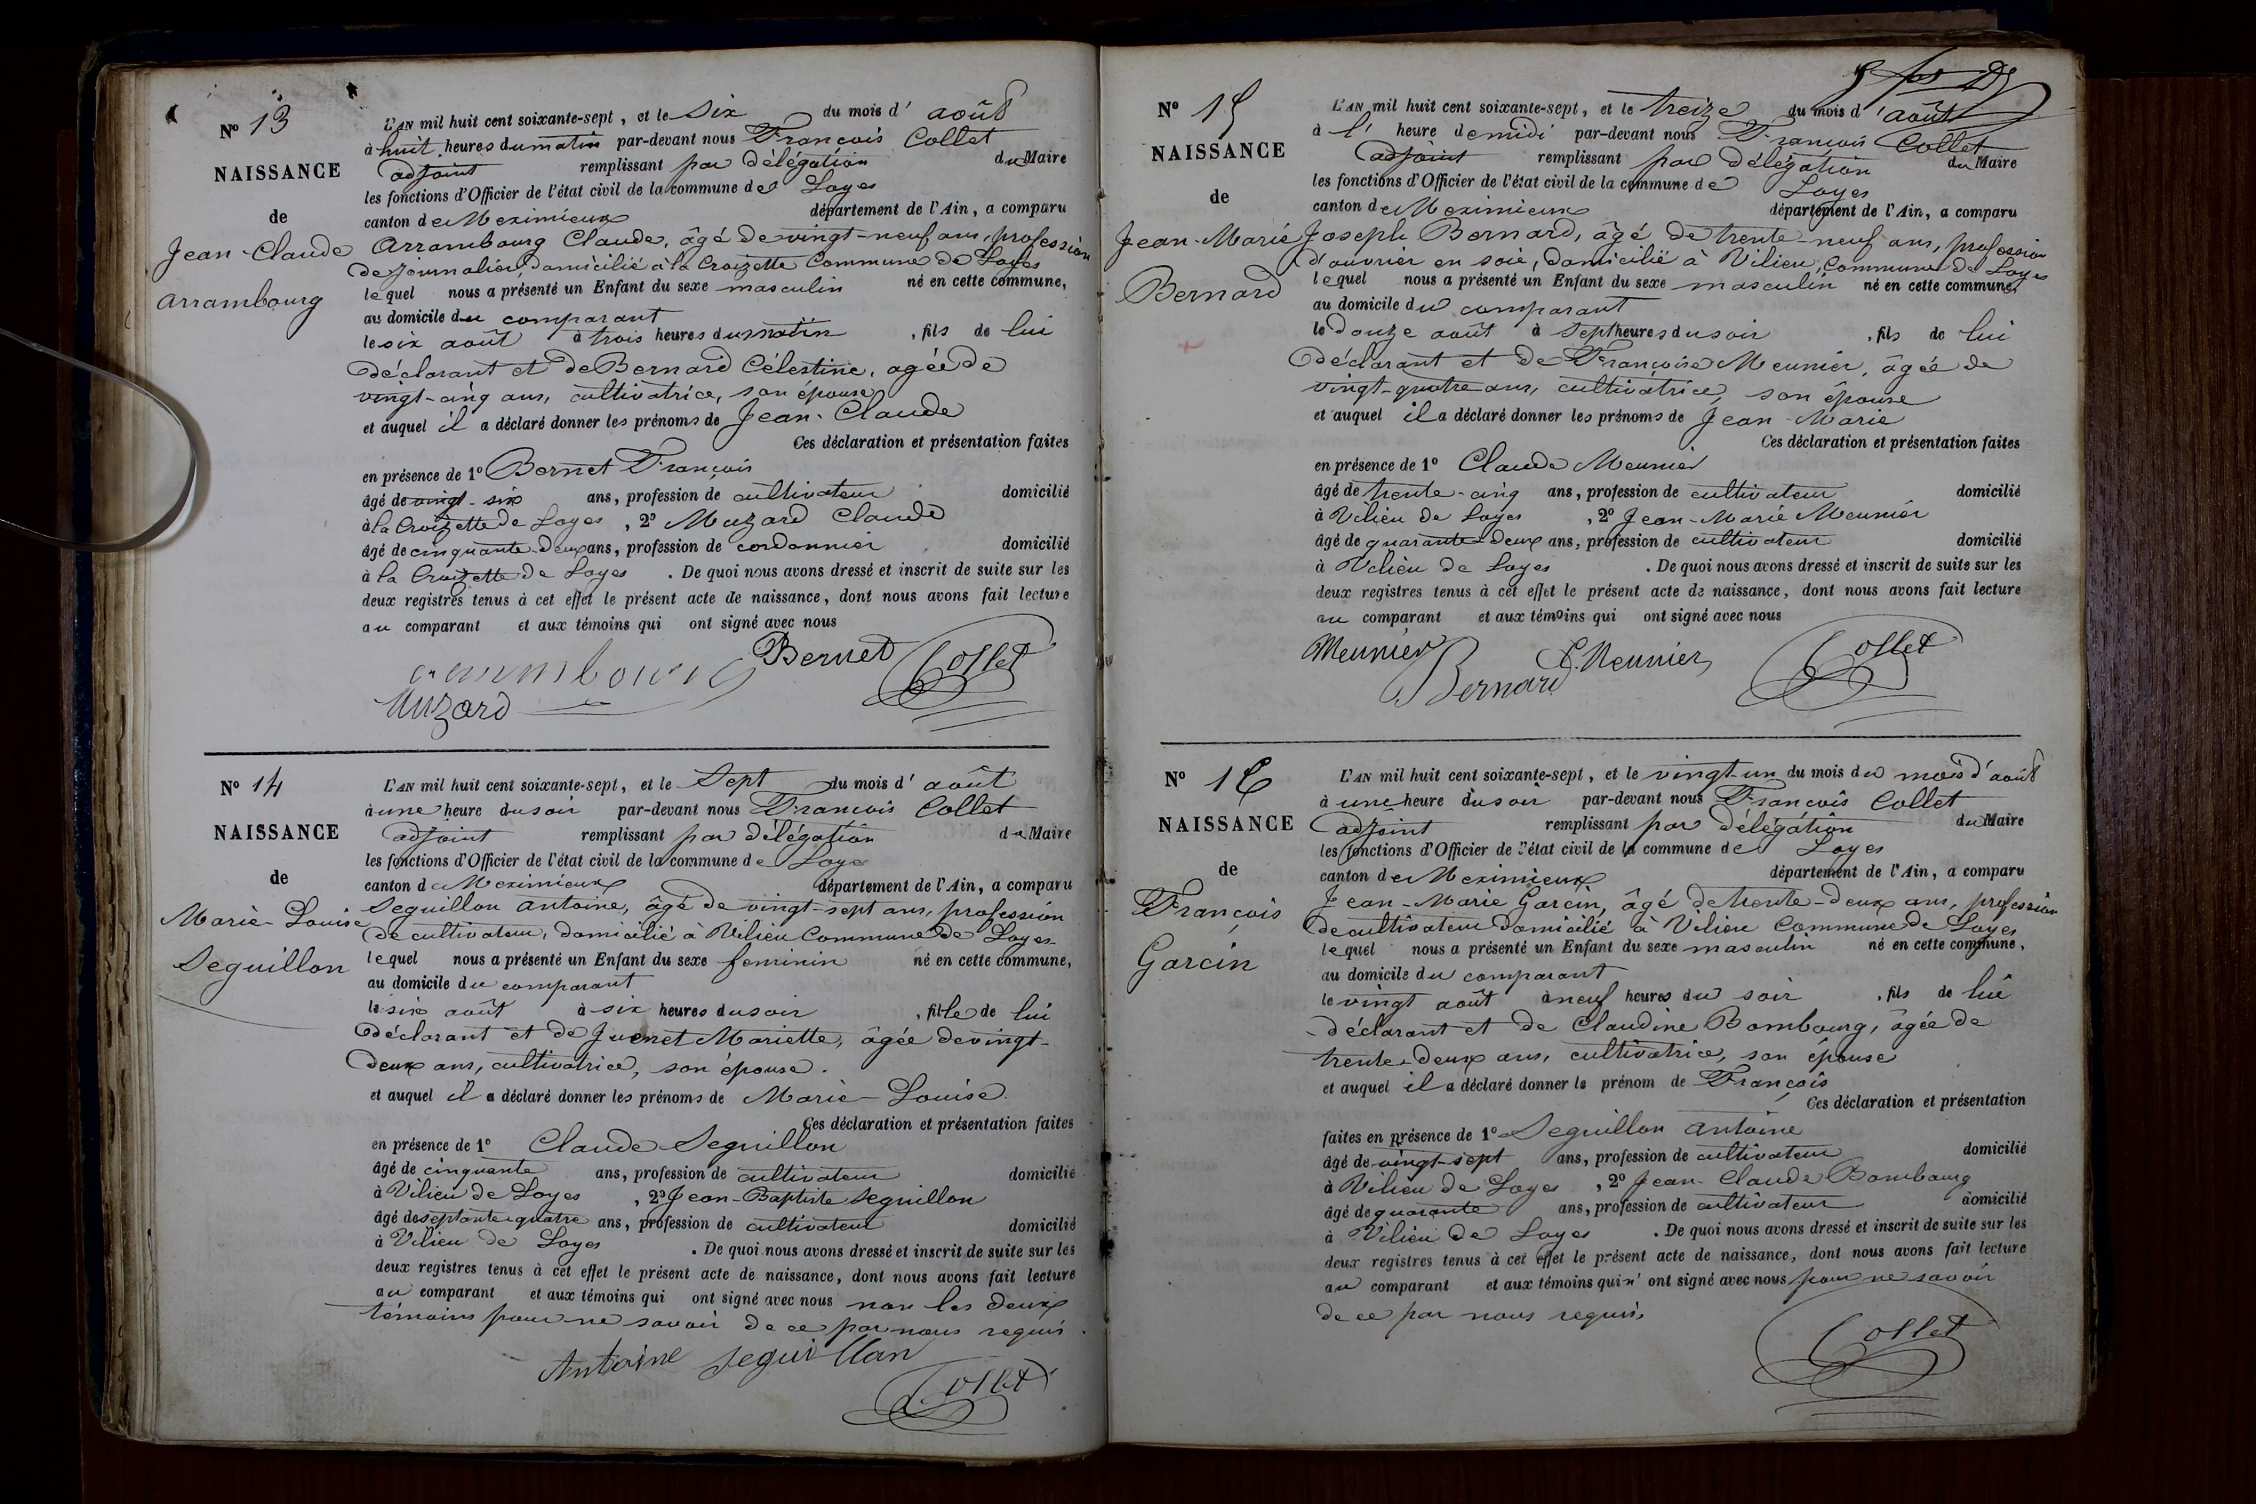 Nº 13
NAISSANCE
de
Jean-Claude
Arrambourg
L'AN mil huit cent soixante-sept, et le Six du mois d' août
à huit heures du matin par-devant nous François Collet
adjoint remplissant par délégation du Maire
les fonctions d'Officier de l'état civil de la commune de Loyes
canton de Meximieux département de l'Ain, a comparu
Arrambourg Claude, âgé de vingt-neuf ans, profession
de journalier, domicilié à la Croizette Commune de Loyes
lequel nous a présenté un Enfant du sexe masculin né en cette commune,
au domicile du comparant
le six août à trois heures du matin, fils de lui
déclarant et de Bernard Célestine, agée de
vingt-cinq ans, cultivatrice, son épouse
et auquel il a déclaré donner les prénoms de Jean-Claude
Ces déclaration et présentation faites
en présence de 1º Bernet François
âgé de vingt-six ans, profession de cultivateur domicilié
à la Croizette de Loyes, 2º Muzard Claude
âgé de cinquante-deux ans, profession de cordonnier domicilié
à la Croizette de Loyes. De quoi nous avons dressé et inscrit de suite sur les
deux registres tenus à cet effet le présent acte de naissance, dont nous avons fait lecture
au comparant et aux témoins qui ont signé avec nous
arrambourg Bernet Collet
Muzard
Nº 14
NAISSANCE
de
Marie-Louise
Seguillon
L'AN mil huit cent soixante-sept, et le Sept du mois d' août
à une heure du soir par-devant nous François Collet
adjoint remplissant par délégation du Maire
les fonctions d'Officier de l'état civil de la commune de Loyes
canton de Meximieux département de l'Ain, a comparu
Seguillon Antoine, âgé de vingt-sept ans, profession
de cultivateur, domicilié à Vilieu Commune de Loyes
lequel nous a présenté un Enfant du sexe feminin né en cette commune,
au domicile du comparant
le six août à six heures du soir, fille de lui
déclarant et de Juenet Mariette, âgée de vingt-
deux ans, cultivatrice, son épouse.
et auquel il a déclaré donner les prénoms de Marie-Louise.
Ces déclaration et présentation faites
en présence de 1º Claude Seguillon
âgé de cinquante ans, profession de cultivateur domicilié
à Vilieu de Loyes, 2º Jean-Baptiste Seguillon
âgé de septante quatre ans, profession de cultivateur domicilié
à Vilieu de Loyes. De quoi nous avons dressé et inscrit de suite sur les
deux registres tenus à cet effet le présent acte de naissance, dont nous avons fait lecture
au comparant et aux témoins qui ont signé avec nous non les deux
témoins pour ne savoir de ce par nous requis.
Antoine Seguillon
Collet
Nº 15
NAISSANCE
de
Jean-Marie
Bernard
L'AN mil huit cent soixante-sept, et le treize du mois d' août
à l' heure de midi par-devant nous François Collet
adjoint remplissant par délégation du Maire
les fonctions d'Officier de l'état civil de la commune de Loyes
canton de Meximieux département de l'Ain, a comparu
Joseph Bernard, âgé de trente-neuf ans, profession
d'ouvrier en soie, domicilié à Vilieu, Commune de Loyes
lequel nous a présenté un Enfant du sexe masculin né en cette commune,
au domicile du comparant
le douze août à sept heures du soir, fils de lui
déclarant et de Françoise Meunier, âgée de
vingt-quatre ans, cultivatrice, son épouse
et auquel il a déclaré donner les prénoms de Jean-Marie
Ces déclaration et présentation faites
en présence de 1º Claude Meunier
âgé de trente-cinq ans, profession de cultivateur domicilié
à Vilieu de Loyes, 2º Jean-Marie Meunier
âgé de quarante-deux ans, profession de cultivateur domicilié
à Vilieu de Loyes. De quoi nous avons dressé et inscrit de suite sur les
deux registres tenus à cet effet le présent acte de naissance, dont nous avons fait lecture
au comparant et aux témoins qui ont signé avec nous
Meunier Bernard C. Meunier Collet
Nº 16
NAISSANCE
de
François
Garcin
L'AN mil huit cent soixante-sept, et le vingt-un du mois du mois d'août
à une heure du soir par-devant nous François Collet
adjoint remplissant par délégation du Maire
les fonctions d'Officier de l'état civil de la commune de Loyes
canton de Meximieux département de l'Ain, a comparu
Jean-Marie Garcin, âgé de trente-deux ans, profession
de cultivateur domicilié à Vilieu Commune de Loyes
lequel nous a présenté un Enfant du sexe masculin né en cette commune,
au domicile du comparant
le vingt août à neuf heures du soir, fils de lui
déclarant et de Claudine Bombourg, âgée de
trente-deux ans, cultivatrice, son épouse
et auquel il a déclaré donner le prénom de François
Ces déclaration et présentation
faites en présence de 1º Seguillon Antoine
âgé de vingt-sept ans, profession de cultivateur domicilié
à Vilieu de Loyes, 2º Jean-Claude Bombourg
âgé de quarante ans, profession de cultivateur domicilié
à Vilieu de Loyes. De quoi nous avons dressé et inscrit de suite sur les
deux registres tenus à cet effet le présent acte de naissance, dont nous avons fait lecture
au comparant et aux témoins qui n' ont signé avec nous pour ne savoir
de ce par nous requis,
Collet